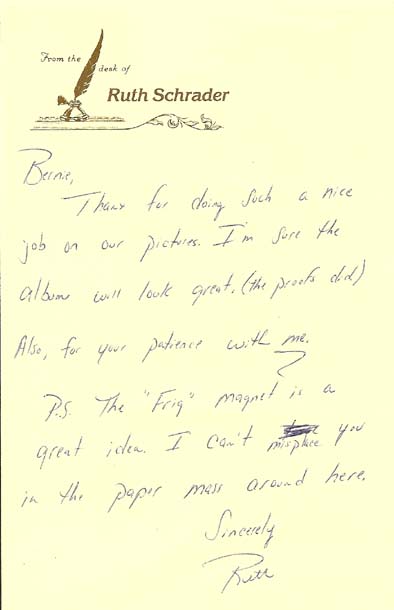 From the
desk of
Ruth Schrader
Bernie,
Thanx for doing such a nice
job on our pictures. I'm sure the
albums will look great. (the proofs did)
Also, for your patience with me.
P.S. The "Frig" magnet is a
great idea. I can't misplace you
in the paper mass around here.
Sincerely
Ruth